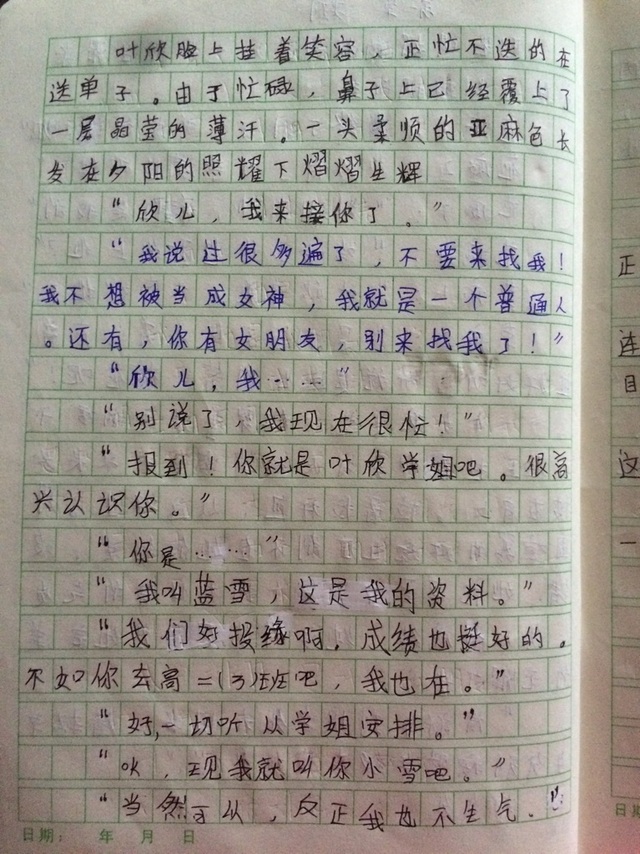 叶欣脸上挂着笑容，正忙不迭的在
送单子。由于忙碌，鼻子上已经覆上了
一层晶莹的薄汗。一头柔顺的亚麻色长
发在夕阳的照耀下熠熠生辉
“欣儿，我来接你了。”
“我说过很多遍了，不要来找我！
我不想被当成女神，我就是一个普通人
。还有，你有女朋友，别来找我了！”
“欣儿，我……”
“别说了，我现在很忙！”
“报到！你就是叶欣学姐吧。很高
兴认识你。”
“你是……”
“我叫蓝雪，这是我的资料。”
“我们好投缘啊，成绩也挺好的。
不如你去高二(3)班吧，我也在。”
“好，一切听从学姐安排。”
“OK，现我就叫你小雪吧。”
“当然可以，反正我也不生气。”
日期： 年 月 日
正
连
目
这
一
日期